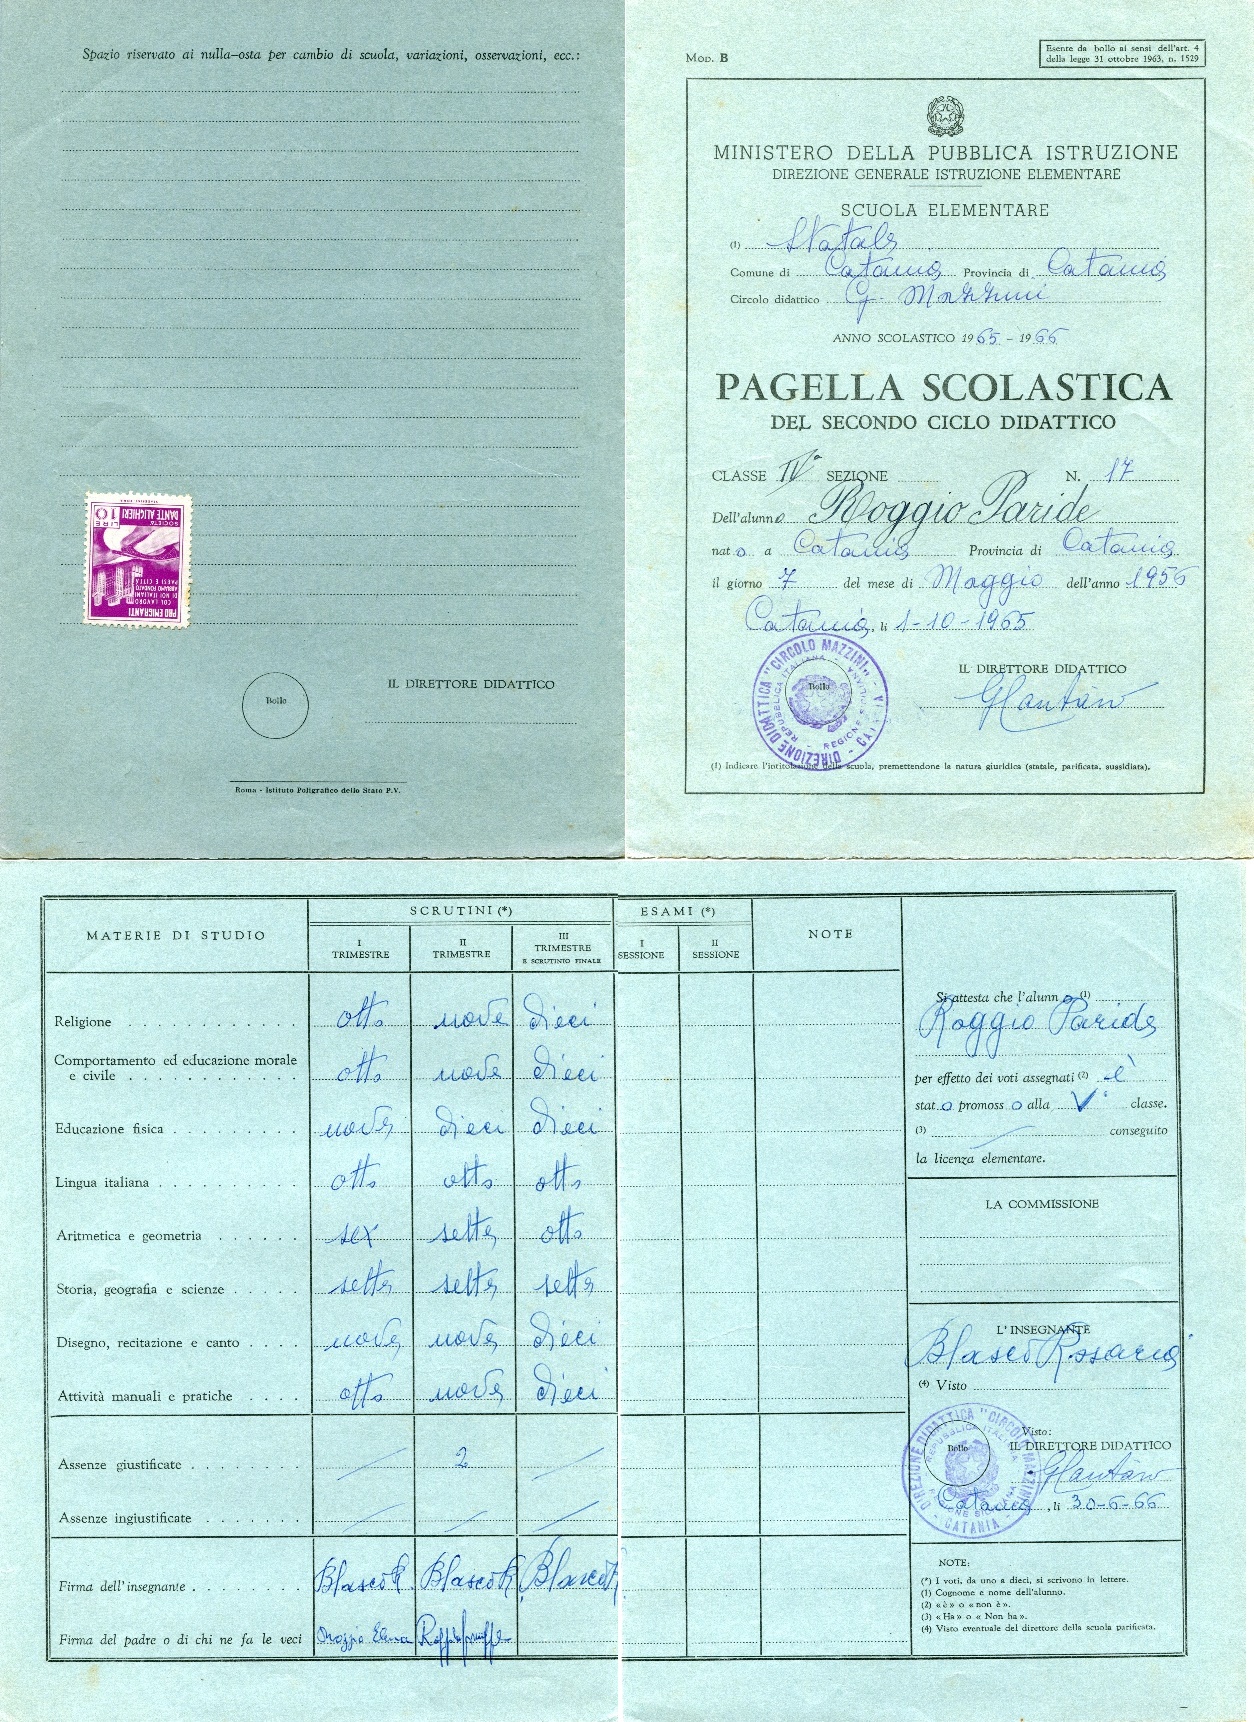 Spazio riservato ai nulla-osta per cambio di scuola, variazioni, osservazioni, ecc.:
LIRE 10
SOCIETÀ DANTE ALIGHIERI
PRO EMIGRANTI
COL LAVORO
DI NOI ITALIANI
ABBIAMO FONDATO
PAESI E CITTÀ
Bollo
IL DIRETTORE DIDATTICO
Roma - Istituto Poligrafico dello Stato P.V.
Mod. B
Esente da bollo ai sensi dell'art. 4
della legge 31 ottobre 1963, n. 1529
MINISTERO DELLA PUBBLICA ISTRUZIONE
DIREZIONE GENERALE ISTRUZIONE ELEMENTARE
SCUOLA ELEMENTARE
(1) Statale
Comune di Catania Provincia di Catania
Circolo didattico G. Mazzini
ANNO SCOLASTICO 1965 - 1966
PAGELLA SCOLASTICA
DEL SECONDO CICLO DIDATTICO
CLASSE IVª SEZIONE N. 17
Dell'alunno Roggio Paride
nato a Catania Provincia di Catania
il giorno 7 del mese di Maggio dell'anno 1956
Catania, li 1-10-1965
IL DIRETTORE DIDATTICO
DIREZIONE DIDATTICA "CIRCOLO MAZZINI" - CATANIA
REPUBBLICA ITALIANA - REGIONE SICILIANA
Bollo
(1) Indicare l'intitolazione della scuola, premettendone la natura giuridica (statale, parificata, sussidiata).
MATERIE DI STUDIO SCRUTINI (*) ESAMI (*) NOTE
I TRIMESTRE II TRIMESTRE III TRIMESTRE E SCRUTINIO FINALE I SESSIONE II SESSIONE
Religione otto nove dieci
Comportamento ed educazione morale
e civile otto nove dieci
Educazione fisica nove dieci dieci
Lingua italiana otto otto otto
Aritmetica e geometria sex sette otto
Storia, geografia e scienze sette sette sette
Disegno, recitazione e canto nove nove dieci
Attività manuali e pratiche otto nove dieci
Assenze giustificate 2
Assenze ingiustificate
Firma dell'insegnante Blasco R. Blasco R. Blasco R
Firma del padre o di chi ne fa le veci Elena
Si attesta che l'alunno (1)
Roggio Paride
per effetto dei voti assegnati (2) è
stato promosso alla Vª classe.
(3) conseguito
la licenza elementare.
LA COMMISSIONE
L'INSEGNANTE
Blasco Rosaria
(4) Visto
Visto:
IL DIRETTORE DIDATTICO
Bollo
DIREZIONE DIDATTICA "CIRCOLO MAZZINI" - CATANIA
REPUBBLICA ITALIANA - REGIONE SICILIANA
Catania, li 30-6-66
NOTE:
(*) I voti, da uno a dieci, si scrivono in lettere.
(1) Cognome e nome dell'alunno.
(2) «è» o «non è».
(3) «Ha» o «Non ha».
(4) Visto eventuale del direttore della scuola parificata.